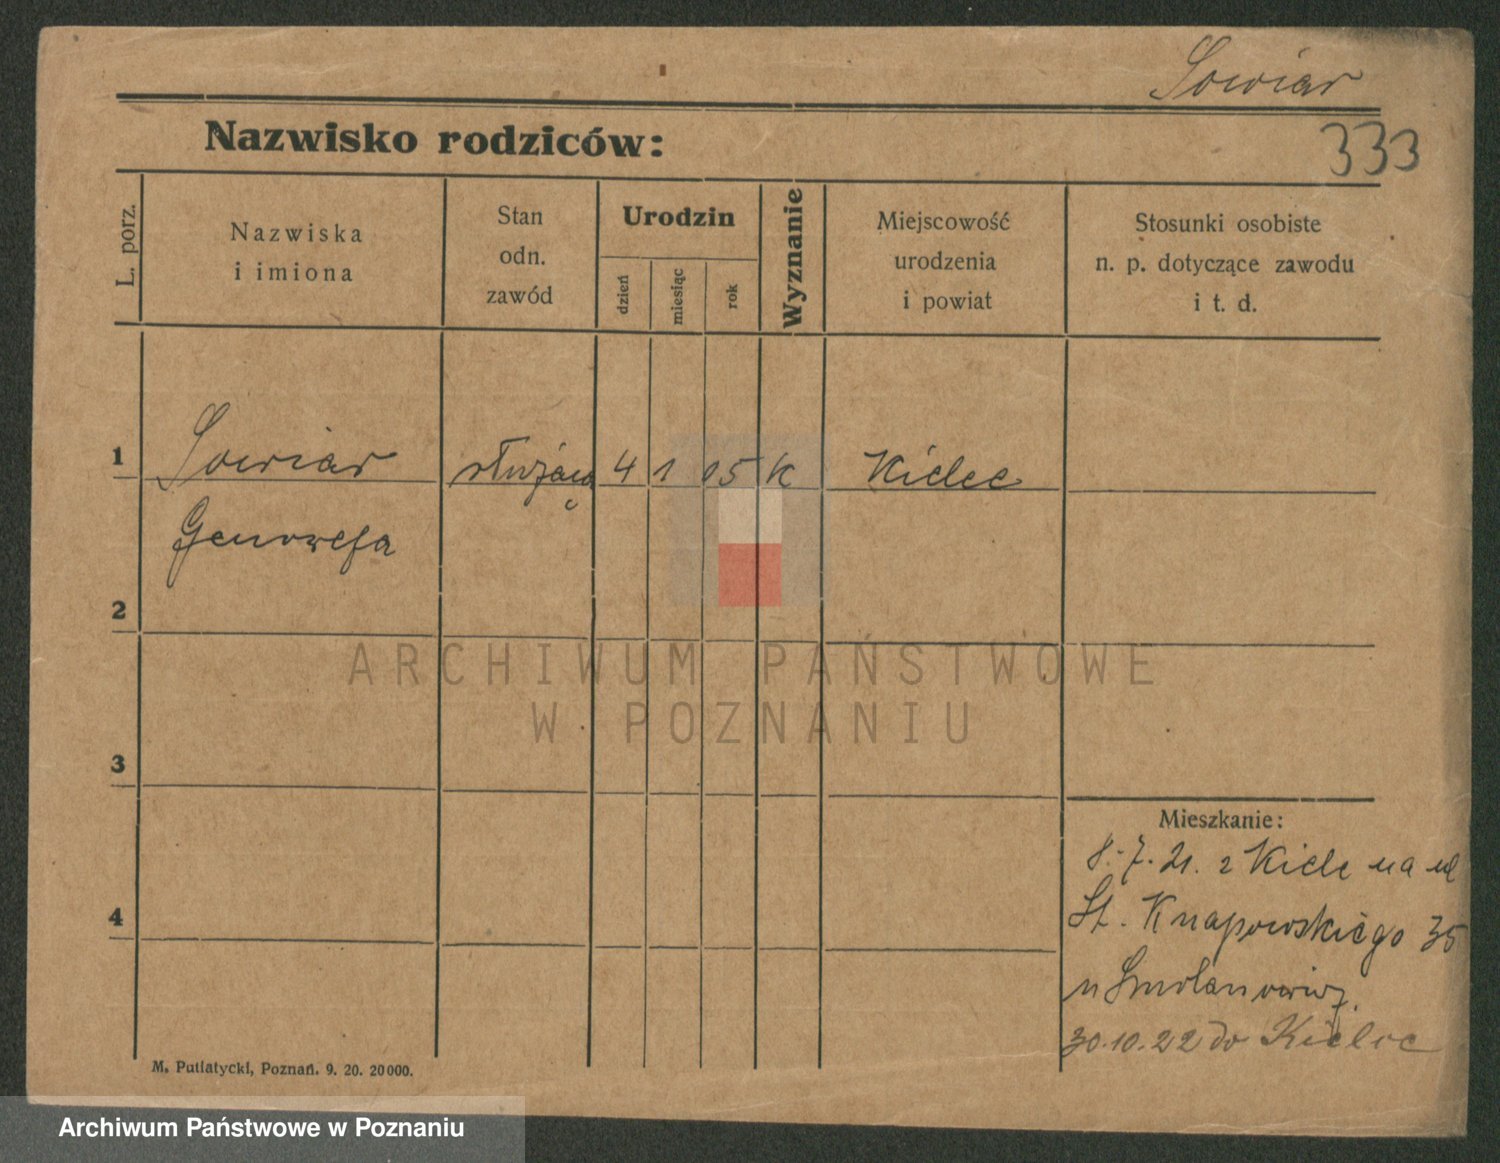 Sowiar
333
Nazwisko rodziców:
L. porz.
Nazwiska
i imiona
Stan
odn.
zawód
Urodzin
dzień
miesiąc
rok
Wyznanie
Miejscowość
urodzenia
i powiat
Stosunki osobiste
n. p. dotyczące zawodu
i t. d.
1 Sowiar służąca 4 1 05 K Kielce
Genowefa
2
3
4
Mieszkanie:
8.-7.21. z Kielc na ul
St. Knapowskiego 35
u Smolanowicz.
30.10.22 do Kielce
M. Putiatycki, Poznań. 9. 20. 20000.
ARCHIWUM PAŃSTWOWE
W POZNANIU
Archiwum Państwowe w Poznaniu